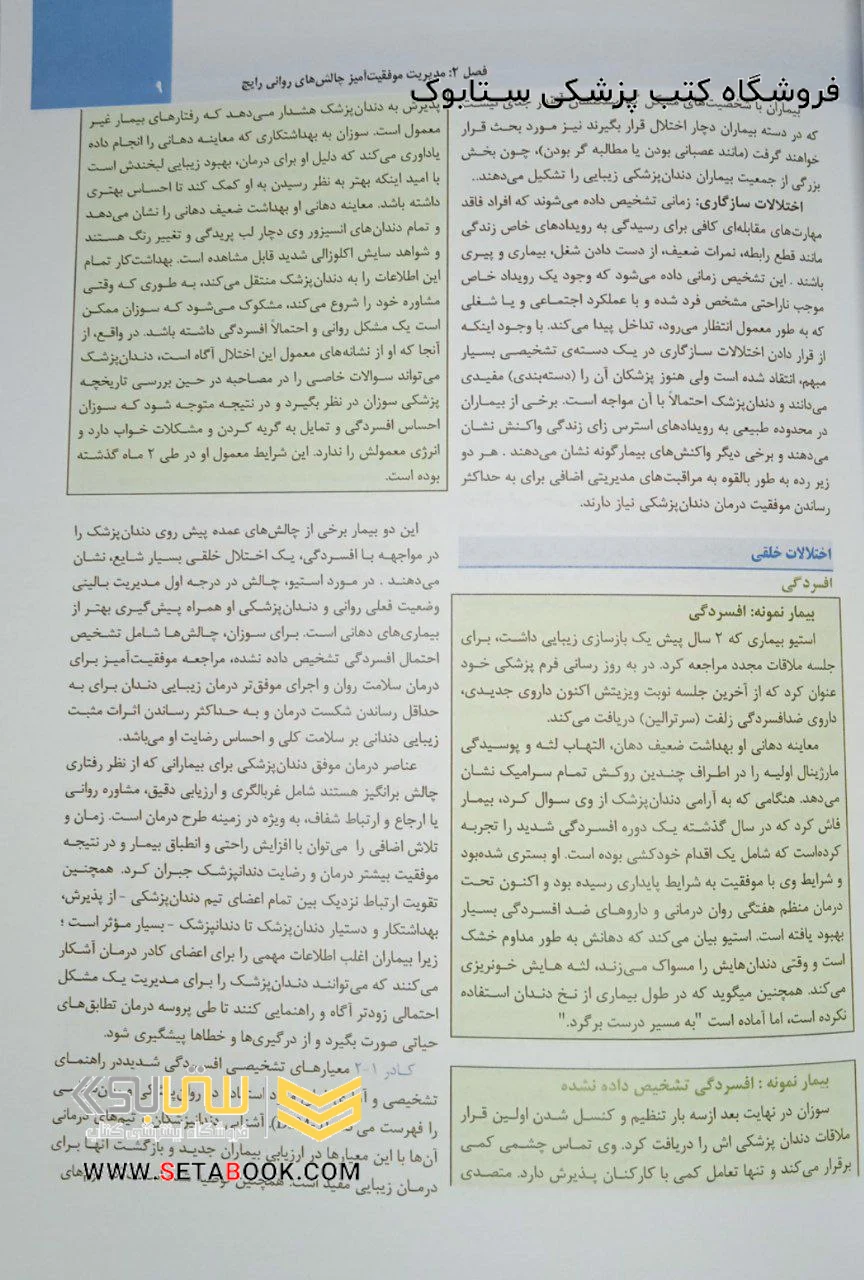 فصل ۲: مدیریت موفقیت‌آمیز چالش‌های روانی رایج
۹
فروشگاه کتب پزشکی ستابوک
بیماران با شخصیت‌های جدی نیست
که در دسته بیماران دچار اختلال قرار بگیرند نیز مورد بحث قرار
خواهند گرفت (مانند عصبانی بودن یا مطالبه گر بودن)، چون بخش
بزرگی از جمعیت بیماران دندان‌پزشکی زیبایی را تشکیل می‌دهند..
اختلالات سازگاری: زمانی تشخیص داده می‌شوند که افراد فاقد
مهارت‌های مقابله‌ای کافی برای رسیدگی به رویدادهای خاص زندگی
مانند قطع رابطه، نمرات ضعیف، از دست دادن شغل، بیماری و پیری
باشند . این تشخیص زمانی داده می‌شود که وجود یک رویداد خاص
موجب ناراحتی مشخص فرد شده و با عملکرد اجتماعی و یا شغلی
که به طور معمول انتظار می‌رود، تداخل پیدا می‌کند. با وجود اینکه
از قرار دادن اختلالات سازگاری در یک دسته‌ی تشخیصی بسیار
مبهم، انتقاد شده است ولی هنوز پزشکان آن را (دسته‌بندی) مفیدی
می‌دانند و دندان‌پزشک احتمالاً با آن مواجه است. برخی از بیماران
در محدوده طبیعی به رویدادهای استرس زای زندگی واکنش نشان
می‌دهند و برخی دیگر واکنش‌های بیمارگونه نشان می‌دهند . هر دو
زیر رده به طور بالقوه به مراقبت‌های مدیریتی اضافی برای به حداکثر
رساندن موفقیت درمان دندان‌پزشکی نیاز دارند.
اختلالات خلقی
افسردگی
بیمار نمونه: افسردگی
استیو بیماری که ۲ سال پیش یک بازسازی زیبایی داشت، برای
جلسه ملاقات مجدد مراجعه کرد. در به روز رسانی فرم پزشکی خود
عنوان کرد که از آخرین جلسه نوبت ویزیتش اکنون داروی جدیدی،
داروی ضدافسردگی زلفت (سرترالین) دریافت می‌کند.
معاینه دهانی او بهداشت ضعیف دهان، التهاب لثه و پوسیدگی
مارژینال اولیه را در اطراف چندین روکش تمام سرامیک نشان
می‌دهد. هنگامی که به آرامی دندان‌پزشک از وی سوال کرد، بیمار
فاش کرد که در سال گذشته یک دوره افسردگی شدید را تجربه
کرده‌است که شامل یک اقدام خودکشی بوده است. او بستری شده‌بود
و شرایط وی با موفقیت به شرایط پایداری رسیده بود و اکنون تحت
درمان منظم هفتگی روان درمانی و داروهای ضد افسردگی بسیار
بهبود یافته است. استیو بیان می‌کند که دهانش به طور مداوم خشک
است و وقتی دندان‌هایش را مسواک می‌زند، لثه هایش خونریزی
می‌کند. همچنین میگوید که در طول بیماری از نخ دندان استفاده
نکرده است، اما آماده است "به مسیر درست برگرد."
بیمار نمونه : افسردگی تشخیص داده نشده
سوزان در نهایت بعد ازسه بار تنظیم و کنسل شدن اولین قرار
ملاقات دندان پزشکی اش را دریافت کرد. وی تماس چشمی کمی
برقرار می‌کند و تنها تعامل کمی با کارکنان پذیرش دارد. متصدی
پذیرش به دندان‌پزشک هشدار می‌دهد که رفتارهای بیمار غیر
معمول است. سوزان به بهداشتکاری که معاینه دهانی را انجام داده
یاداوری می‌کند که دلیل او برای درمان، بهبود زیبایی لبخندش است
با امید اینکه بهتر به نظر رسیدن به او کمک کند تا احساس بهتری
داشته باشد. معاینه دهانی او بهداشت ضعیف دهانی را نشان می‌دهد
و تمام دندان‌های انسیزور وی دچار لب پریدگی و تغییر رنگ هستند
و شواهد سایش اکلوزالی شدید قابل مشاهده است. بهداشت‌کار تمام
این اطلاعات را به دندان‌پزشک منتقل می‌کند، به طوری که وقتی
مشاوره خود را شروع می‌کند، مشکوک می‌شود که سوزان ممکن
است یک مشکل روانی و احتمالاً افسردگی داشته باشد. در واقع، از
آنجا که او از نشانه‌های معمول این اختلال آگاه است، دندان‌پزشک
می‌تواند سوالات خاصی را در مصاحبه در حین بررسی تاریخچه
پزشکی سوزان در نظر بگیرد و در نتیجه متوجه شود که سوزان
احساس افسردگی و تمایل به گریه کردن و مشکلات خواب دارد و
انرژی معمولش را ندارد. این شرایط معمول او در طی ۲ ماه گذشته
بوده است.
این دو بیمار برخی از چالش‌های عمده پیش روی دندان‌پزشک را
در مواجهه با افسردگی، یک اختلال خلقی بسیار شایع، نشان
می‌دهند . در مورد استیو، چالش در درجه اول مدیریت بالینی
وضعیت فعلی روانی و دندان‌پزشکی او همراه پیش‌گیری بهتر از
بیماری‌های دهانی است. برای سوزان، چالش‌ها شامل تشخیص
احتمال افسردگی تشخیص داده نشده، مراجعه موفقیت‌آمیز برای
درمان سلامت روان و اجرای موفق‌تر درمان زیبایی دندان برای به
حداقل رساندن شکست درمان و به حداکثر رساندن اثرات مثبت
زیبایی دندانی بر سلامت کلی و احساس رضایت او می‌باشد.
عناصر درمان موفق دندان‌پزشکی برای بیمارانی که از نظر رفتاری
چالش برانگیز هستند شامل غربالگری و ارزیابی دقیق، مشاوره روانی
یا ارجاع و ارتباط شفاف، به ویژه در زمینه طرح درمان است. زمان و
تلاش اضافی را می‌توان با افزایش راحتی و انطباق بیمار و در نتیجه
موفقیت بیشتر درمان و رضایت دندانپزشک جبران کرد. همچنین
تقویت ارتباط نزدیک بین تمام اعضای تیم دندان‌پزشکی - از پذیرش،
بهداشتکار و دستیار دندان‌پزشک تا دندانپزشک - بسیار مؤثر است ؛
زیرا بیماران اغلب اطلاعات مهمی را برای اعضای کادر درمان آشکار
می‌کنند که می‌توانند دندان‌پزشک را برای مدیریت یک مشکل
احتمالی زودتر آگاه و راهنمایی کنند تا طی پروسه درمان تطابق‌های
حیاتی صورت بگیرد و از درگیری‌ها و خطاها پیشگیری شود.
کادر ۱-۲ معیارهای تشخیصی افسردگی شدیددر راهنمای
تشخیصی و
را فهرست تیم‌های درمانی
آن‌ها با این معیارها در ارزیابی بیماران جدید و بازگشت آنها برای
درمان زیبایی مفید است. همچنین
ستابوک
فروشگاه اینترنتی کتاب
WWW.SETABOOK.COM